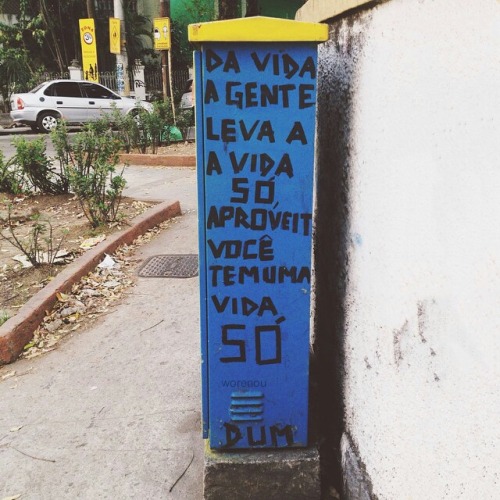 DA VIDA
A GENTE
LEVA A
A VIDA
SÓ,
APROVEIT
VOCÊ
TEM UMA
VIDA
SÓ
worepou
DUM